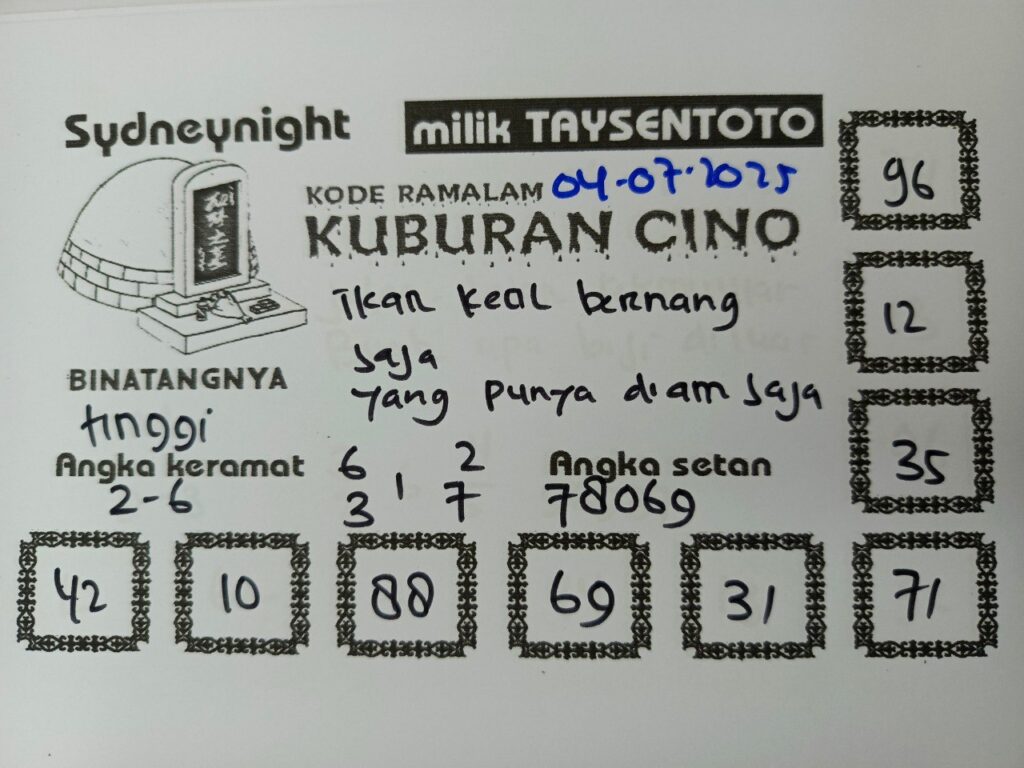 Sydneynight
milik TAYSENTOTO
KODE RAMALAM 04-07-2025
KUBURAN CINO
ikan kecil bernang
saja
yang punya diam saja
BINATANGNYA
tinggi
Angka keramat
2-6
6 , 2
3 7
Angka setan
78069
96
12
35
42 10 88 69 31 71